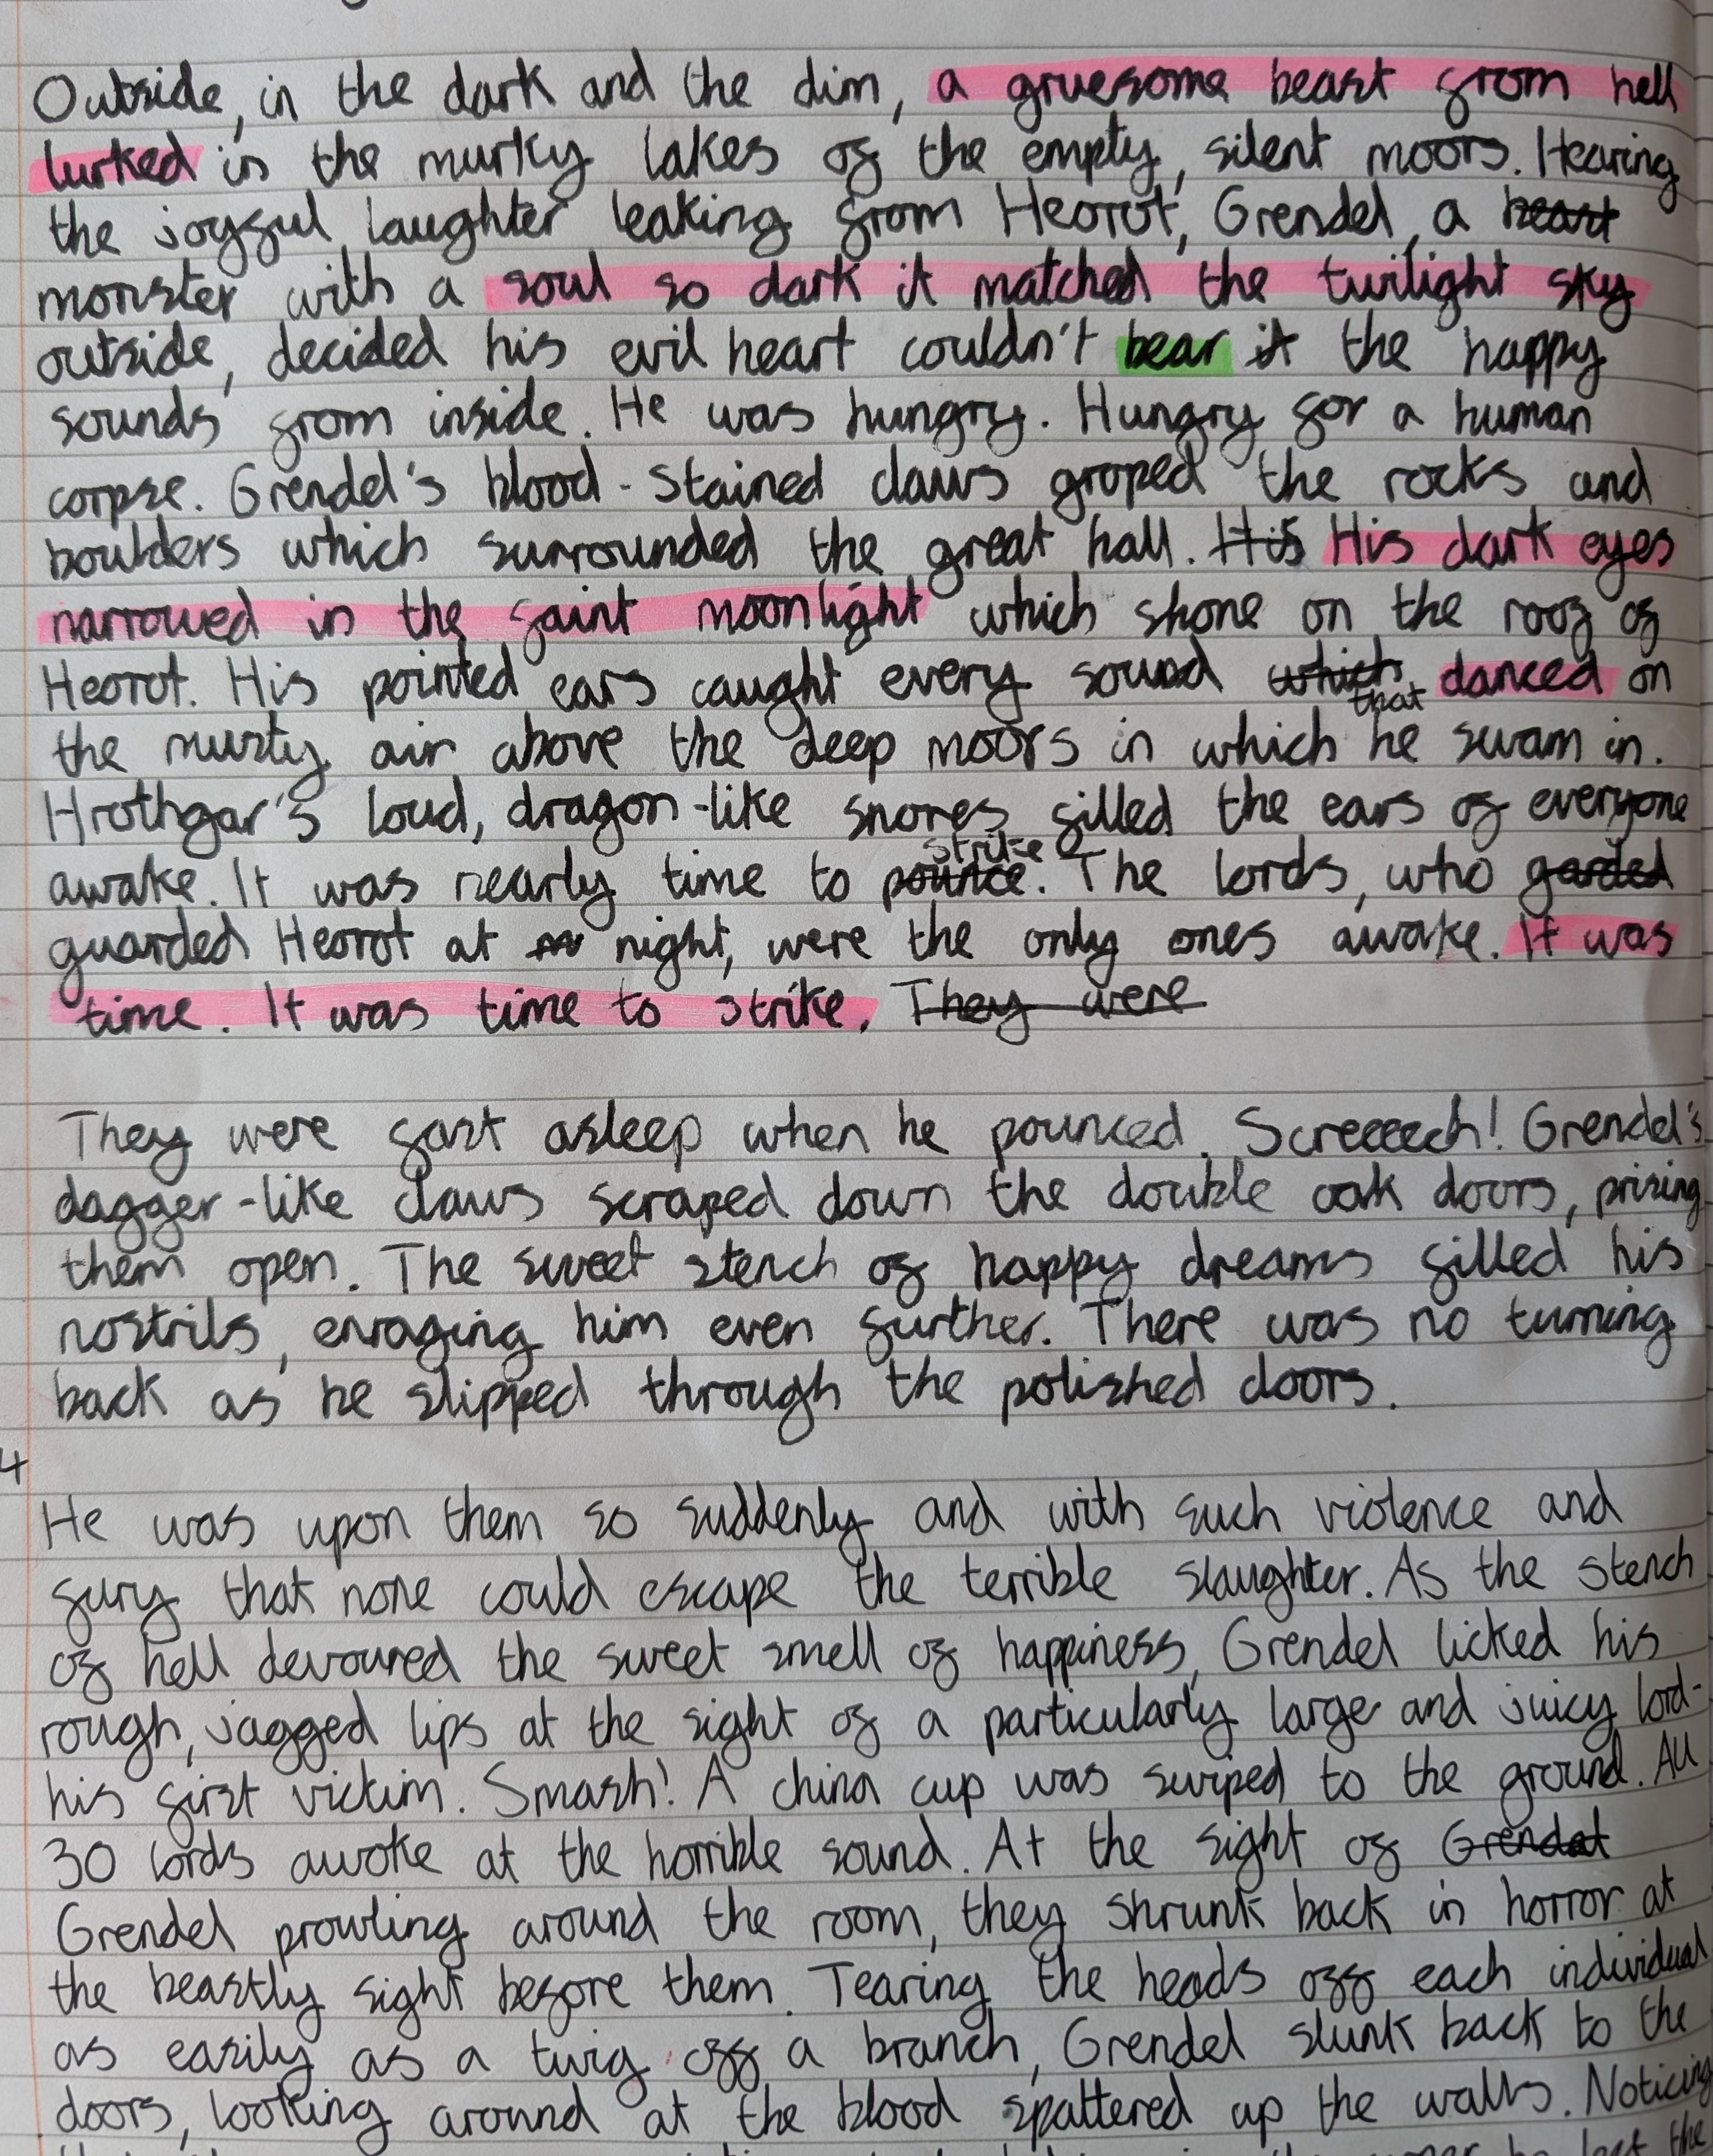 Outside, in the dark and the dim, a gruesome beast from hell
lurked in the murky lakes of the empty, silent moors. Hearing
the joyful laughter leaking from Heorot, Grendel, a heart
monster with a soul so dark it matched the twilight sky
outside, decided his evil heart couldn't bear it the happy
sounds from inside. He was hungry. Hungry for a human
corpse. Grendel's blood-stained claws groped the rocks and
boulders which surrounded the great hall. His His dark eyes
narrowed in the faint moonlight which shone on the roof of
Heorot. His pointed ears caught every sound which that danced on
the musty air above the deep moors in which he swam in.
Hrothgar's loud, dragon-like snores filled the ears of everyone
awake. It was nearly time to pounce strike. The lords, who garded
guarded Heorot at night, were the only ones awake. It was
time. It was time to strike. They were
They were fast asleep when he pounced. Screeeech! Grendel's
dagger-like claws scraped down the double oak doors, prising
them open. The sweet stench of happy dreams filled his
nostrils, enraging him even further. There was no turning
back as he slipped through the polished doors.
4
He was upon them so suddenly and with such violence and
fury that none could escape the terrible slaughter. As the stench
of hell devoured the sweet smell of happiness, Grendel licked his
rough, jagged lips at the sight of a particularly large and juicy lord-
his first victim. Smash! A china cup was swiped to the ground. All
30 lords awoke at the horrible sound. At the sight of Grendal
Grendel prowling around the room, they shrunk back in horror at
the beastly sight before them. Tearing the heads off each individual
as easily as a twig off a branch, Grendel slunk back to the
doors, looking around at the blood spattered up the walls. Noticing